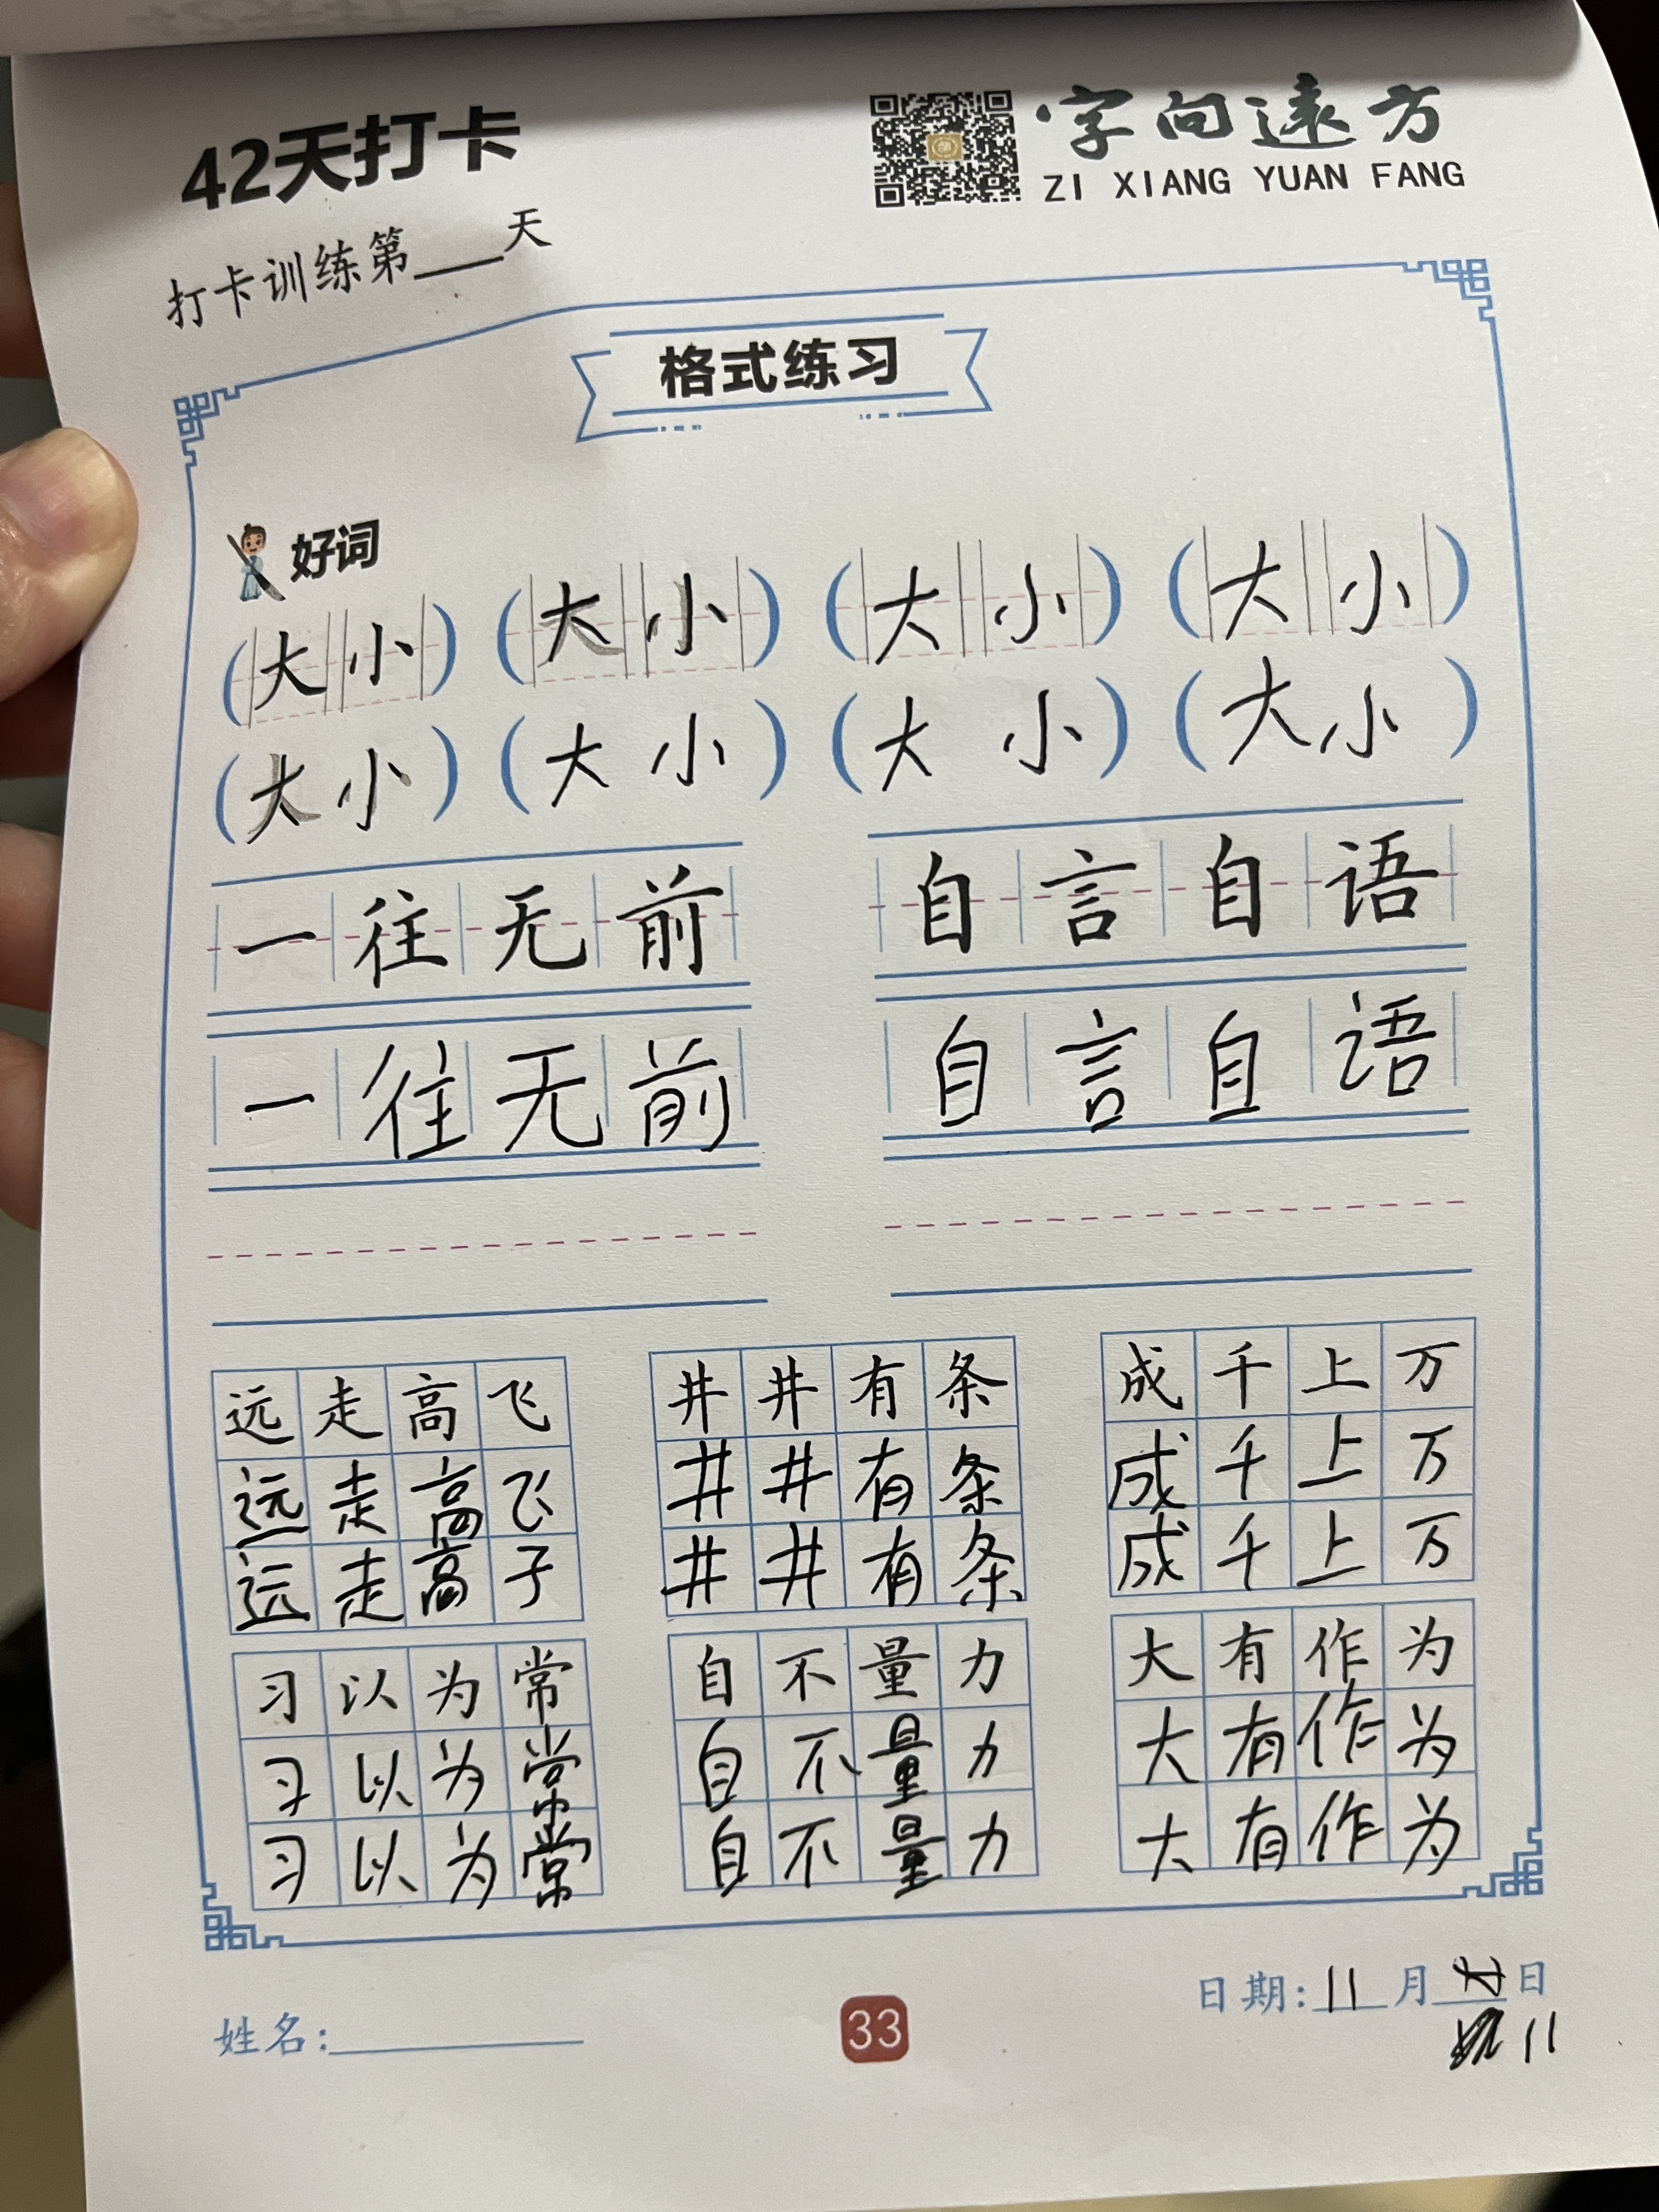 42天打卡
字向远方
ZI XIANG YUAN FANG
打卡训练第___天
格式练习
好词
(大小) (大小) (大小) (大小)
(大小) (大小) (大小) (大小)
一往无前 自言自语
一往无前 自言自语
远走高飞 井井有条 成千上万
远走高飞 井井有条 成千上万
远走高子 井井有条 成千上万
习以为常 自不量力 大有作为
习以为常 自不量力 大有作为
习以为常 自不量力 大有作为
日期:11月日
11
姓名:
33